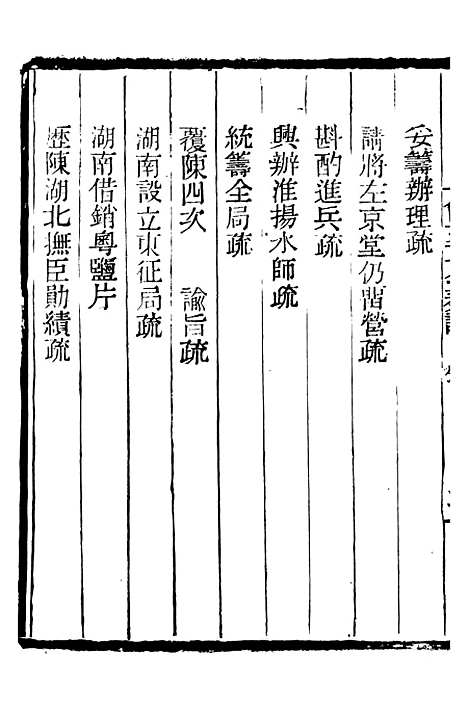 妥籌辦理疏
請將左京堂仍留營疏
斟酌進兵疏
興辦淮揚水師疏
統籌全局疏
覆陳四次　諭旨疏
湖南設立東征局疏
湖南借銷粵鹽片
歷陳湖北撫臣勛績疏